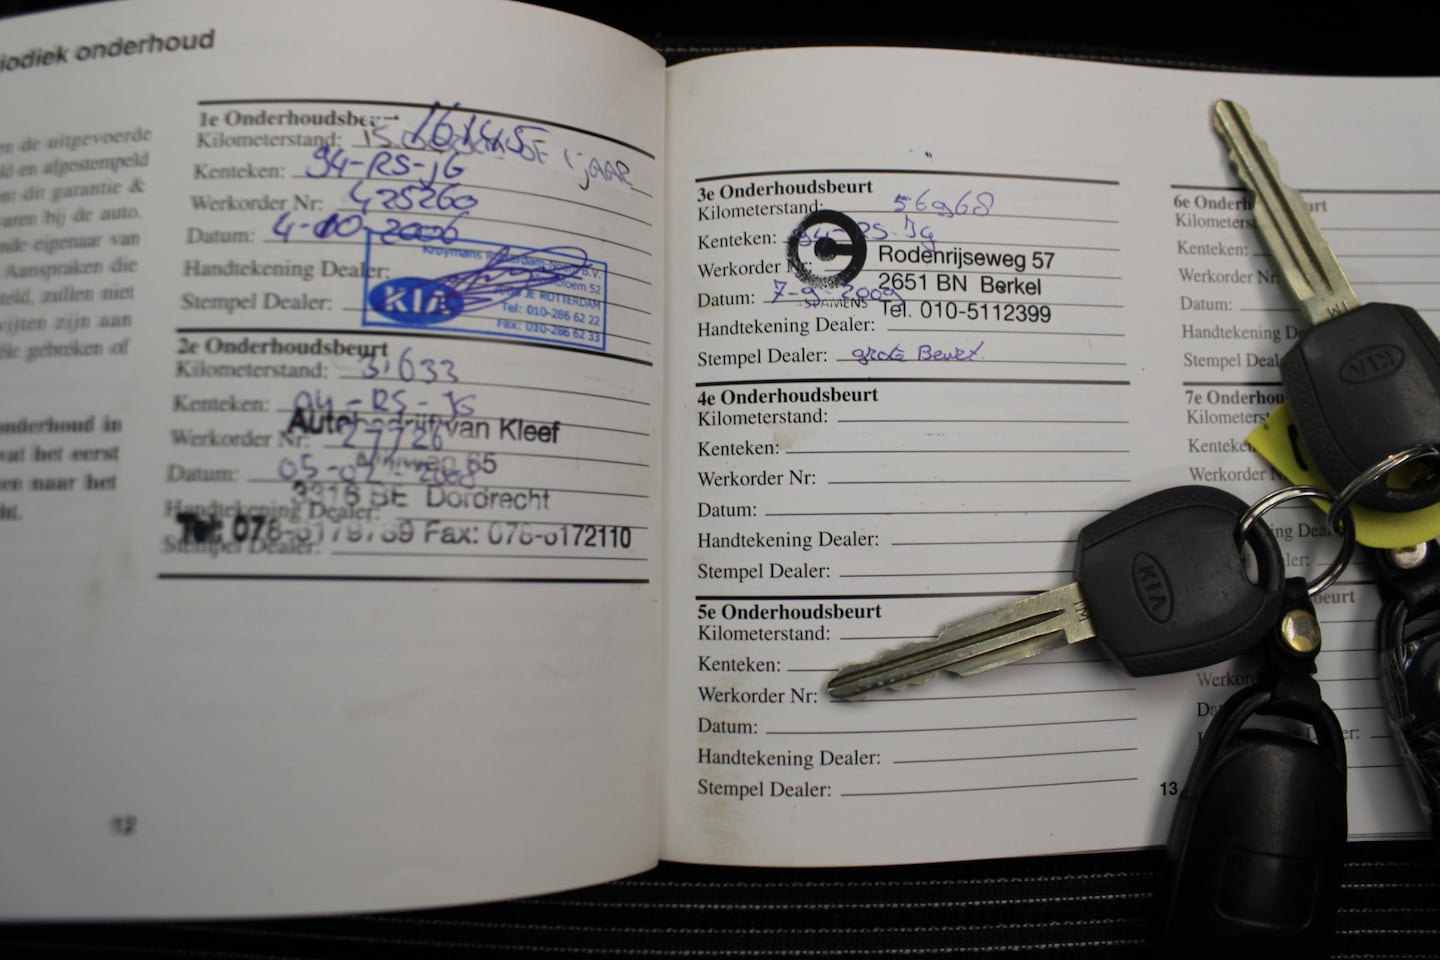 iodiek onderhoud
en de uitgevoerde
ld en afgestempeld
om dit garantie &
varen bij de auto.
nde eigenaar van
Aanspraken die
teld, zullen niet
wijten zijn aan
gebreken of
onderhoud in
wat het eerst
en naar het
1e Onderhoudsbeurt
Kilometerstand: 16145 1 JAAR
Kenteken: 94-RS-JG
Werkorder Nr: 425260
Datum: 4-10-2006
Handtekening Dealer:
Stempel Dealer:
KIA
Kroymans
52
JE ROTTERDAM
Tel: 010-286 62 22
Fax: 010-286 62 33
2e Onderhoudsbeurt
Kilometerstand: 31633
Kenteken: 94-RS-JG
Werkorder Nr: 27726
Datum: 05-02-2008
Handtekening Dealer:
Stempel Dealer:
Autobedrijf van Kleef
65
3316 BE Dordrecht
Tel: 078-6179739 Fax: 078-6172110
12
3e Onderhoudsbeurt
Kilometerstand: 56968
Kenteken: 94-RS-JG
Werkorder Nr:
Datum: 7-9-2009
Handtekening Dealer:
Stempel Dealer: grote Beurt
Rodenrijseweg 57
2651 BN Berkel
Tel. 010-5112399
4e Onderhoudsbeurt
Kilometerstand:
Kenteken:
Werkorder Nr:
Datum:
Handtekening Dealer:
Stempel Dealer:
5e Onderhoudsbeurt
Kilometerstand:
Kenteken:
Werkorder Nr:
Datum:
Handtekening Dealer:
Stempel Dealer:
13
6e Onderh
urt
Kilometers
Kenteken:
Werkorder Nr
Datum:
Handtekening D
Stempel Deal
7e Onderhou
Kilometerst
Kenteken
Werkorder N
ing Dea
ler:
beurt
Werkord
Da
er:
KIA
KIA